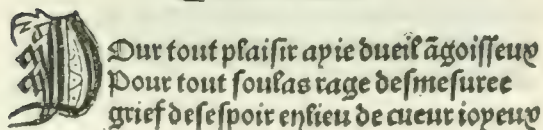 POur tout plaiſir ay ie dueil āgoiſſeux
Pour tout ſoulas rage deſmeſuree
grief deſeſpoir enlieu de cueur ioyeux